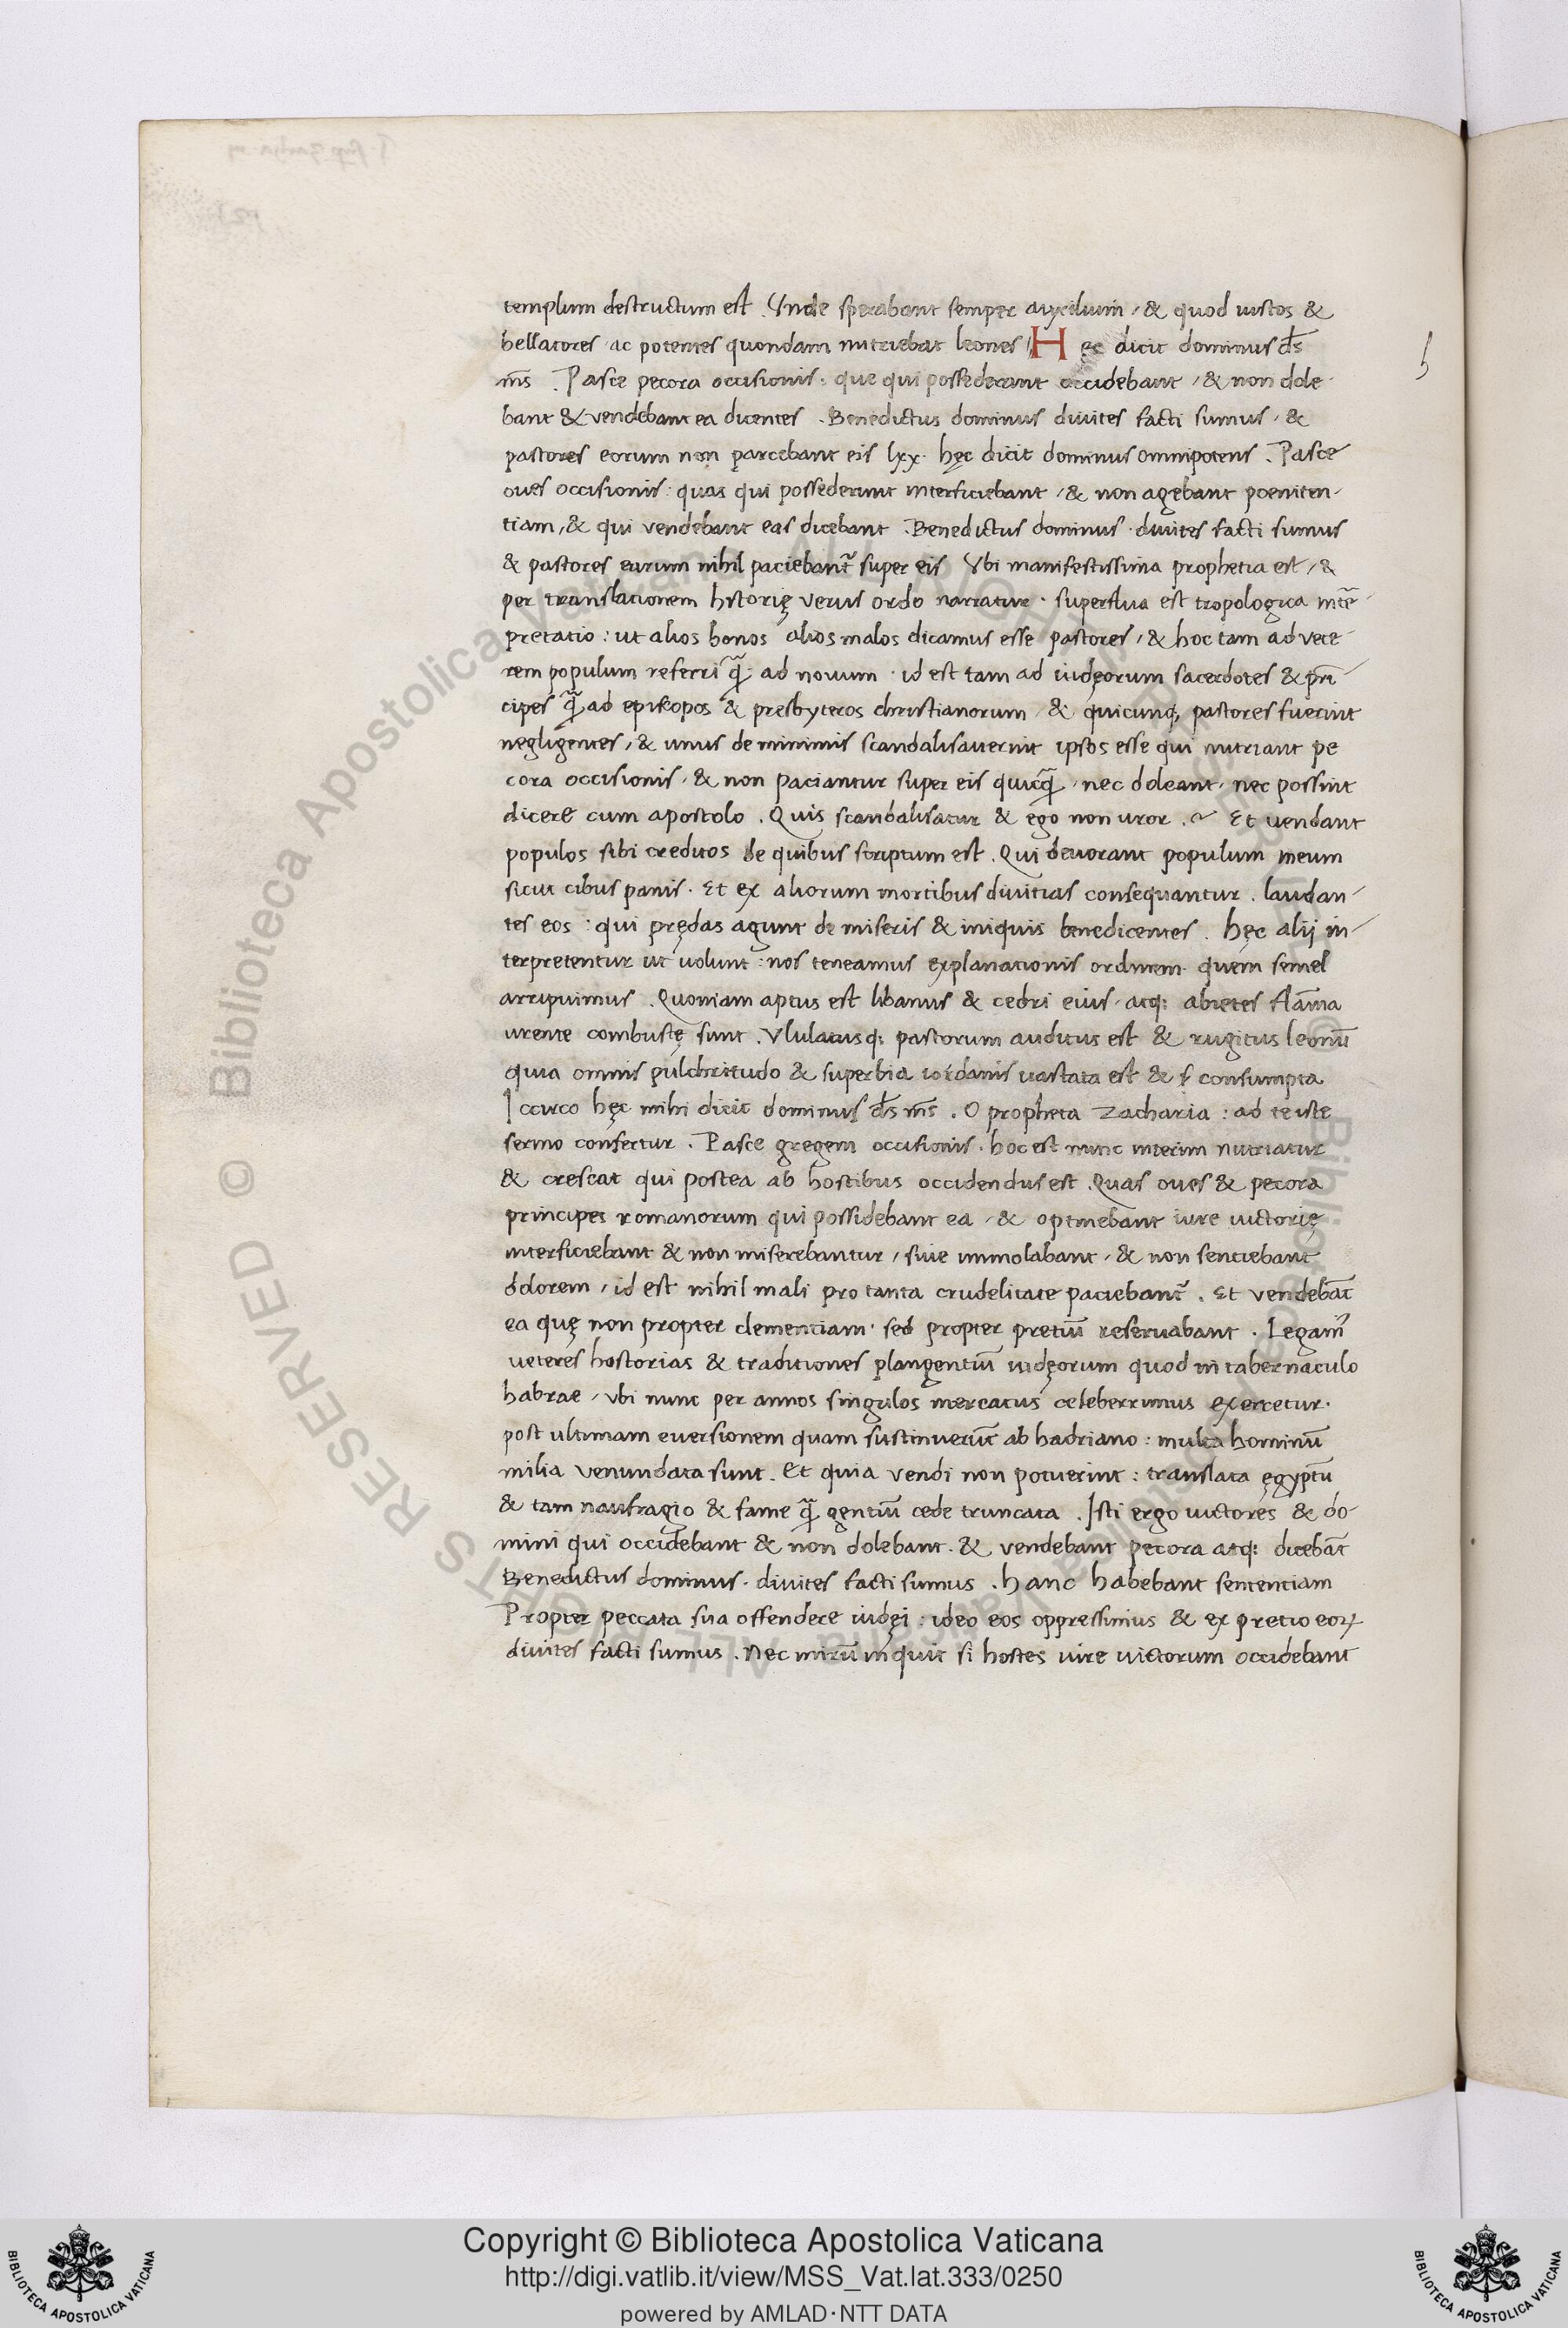 templum destructum est . Vnde sperabant semper auxilium / & quod iustos &
bellatores ac potentes quondam nutriebat leones / Hęc dicit dominus ds̄
ms̄ . Pasce pecora occisionis : que qui possederant occidebant / & non dole
bant & vendebant ea dicentes . Benedictus dominus diuites facti sumus / &
pastores eorum non parcebant eis lxx . hęc dicit dominus omnipotens . Pasce
oues occisionis : quas qui possederunt interficiebant / & non agebant poeniten-
tiam / & qui vendebant eas dicebant . Benedictus dominus . diuites facti sumus
& pastores earum nihil paciebant᷑ super eis Vbi manifestissima prophetia est / &
per translationem historię verus ordo narratur . superflua est tropologica int̄e-
pretatio : ut alios bonos alios malos dicamus esse pastores / & hoc tam ad vete-
rem populum referri q̄ ad nouum . id est tam ad iudęorum sacerdotes & prī-
cipes q̄ ad episkopos & presbyteros christianorum / & quicunq; pastores fuerint
negligentes / & unus de minimis scandalisauerint ipsos esse qui nutriant pe
cora occisionis / & non paciantur super eis quicq̄ / nec doleant / nec possint
dicere cum apostolo . Quis scandalisatur & ego non uror . ~ Et vendant
populos sibi creditos de quibus scriptum est . Qui deuorant populum meum
sicut cibus panis . Et ex aliorum mortibus diuitias consequantur . laudan-
tes eos : qui prędas agunt de miseris & iniquis benedicentes . hęc alij in-
terpretentur ut uolunt : nos teneamus explanationis ordinem quem semel
arripuimus . Quoniam aptus est libanus & cedri eius / atq; abietes flāma
urente combustę sunt . Vlulatusq; pastorum auditus est & rugitus leonū
quia omnis pulchritudo & superbia iordanis uastata est & consumpta
Iccirco hęc mihi dicit dominus ds̄ ms̄ . O propheta Zacharia : ad te iste
sermo confertur . Pasce gregem occisionis . hoc est nunc interim nutriatur
& crescat qui postea ab hostibus occidendus est . Quas oues & pecora
principes romanorum qui possidebant ea / & optinebant iure uictorię
interficiebant & non miserebantur / siue immolabant / & non sentiebant
dolorem / id est nihil mali pro tanta crudelitate paciebant᷑ . Et vendebāt
ea quę non propter clementiam . sed propter pretiū reseruabant . Legam᷒
ueteres hostorias & traditiones plangentiū iudęorum quod in tabernaculo
habrae / vbi nunc per annos singulos mercatus celeberrimus exercetur .
post ultimam euersionem quam sustinuerūt ab hadriano : multa hominū
milia venundata sunt . Et quia vendi non potuerint : translata ęgyptū
& tam naufragio & fame q̄ gentiū cede truncata . Isti ergo uictores & do-
mini qui occidebant & non dolebant . & vendebant pecora atq; dicebāt
Benedictus dominus . diuites facti sumus . hanc habebant sententiam
Propter peccata sua offendere iudęi : ideo eos oppressimus & ex pretio eoꝝ
diuites facti sumus . Nec mirū inquit si hostes iure uictorum occidebant
Copyright © Biblioteca Apostolica Vaticana
http://digi.vatlib.it/view/MSS_Vat.lat.333/0250
powered by AMLAD·NTT DATA